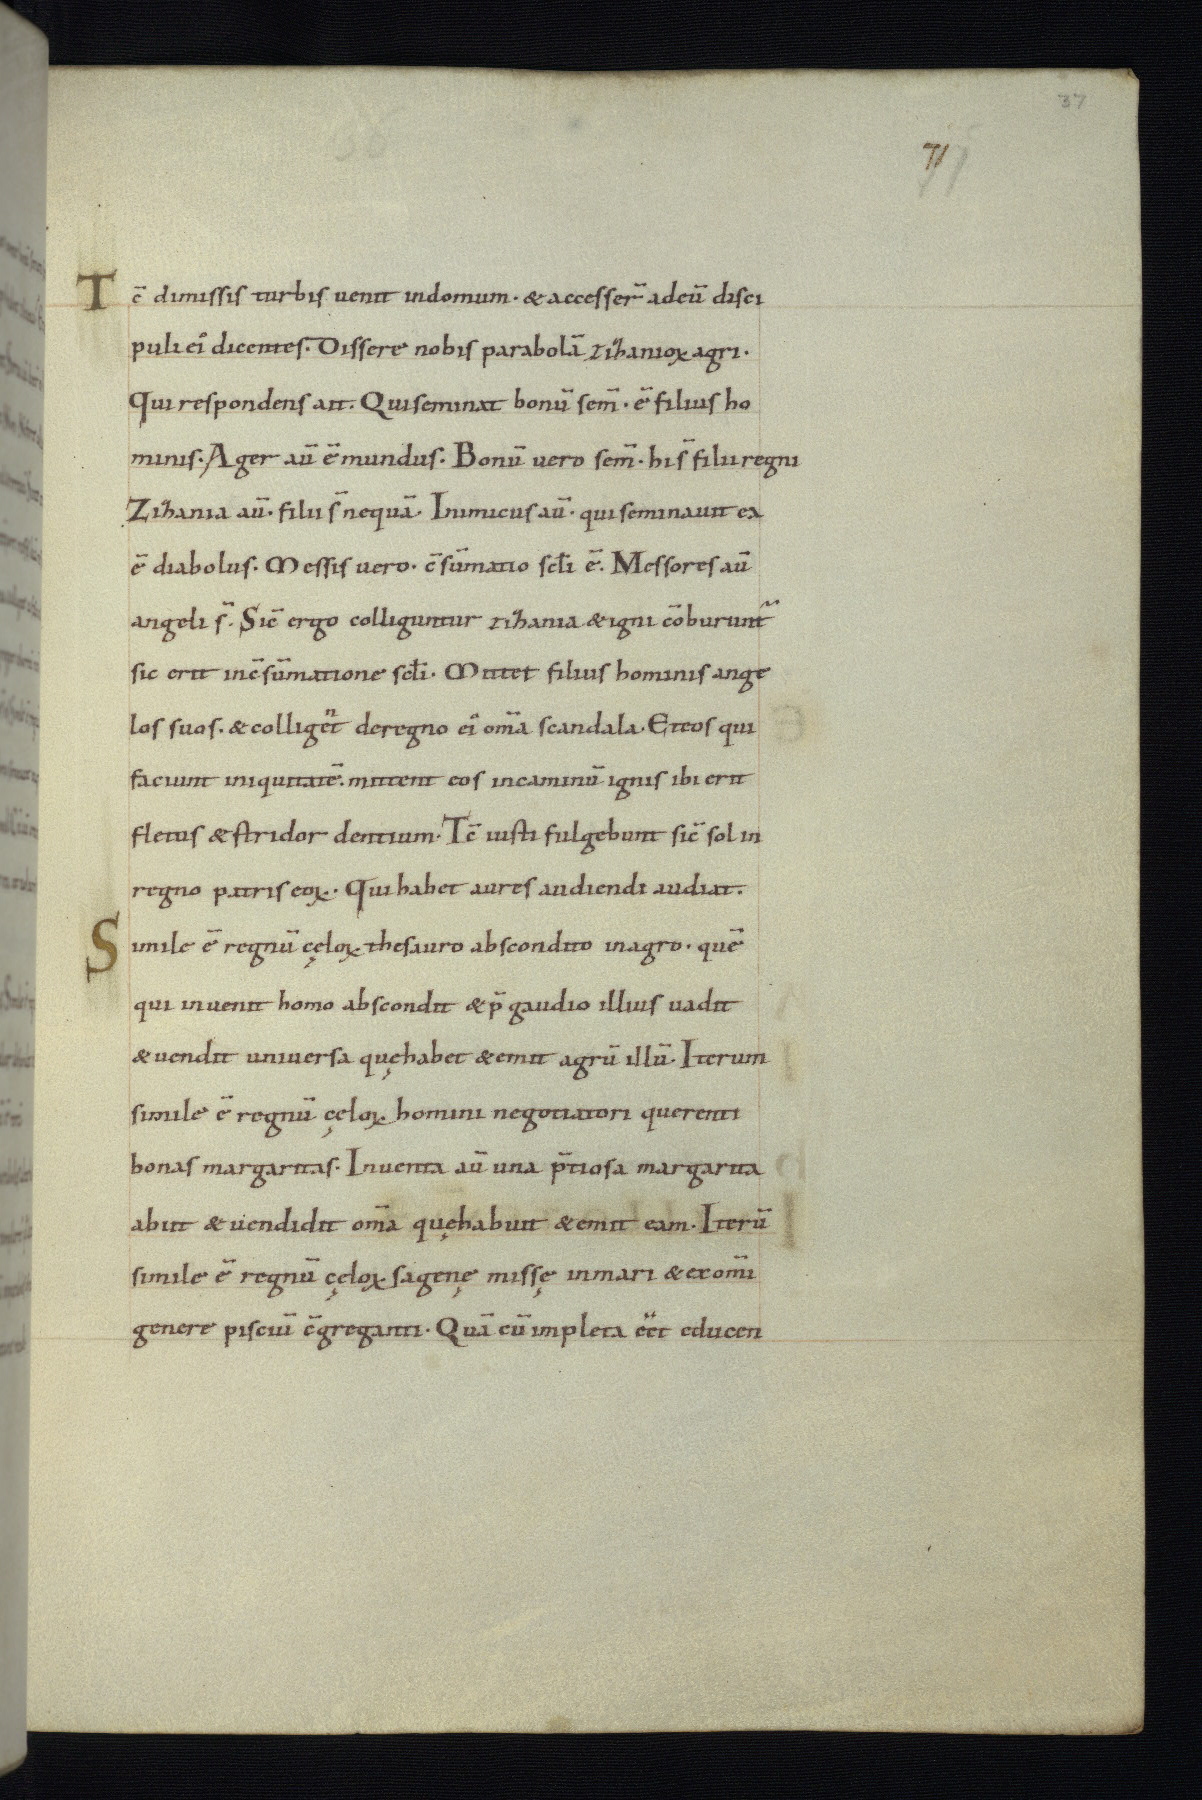 37
71
Tc̄ dimissis turbis uenit indomum· & accesser̄ adeū disci
puli ei᷒ dicentes. Dissere nobis parabolā zizanioꝝ agri.
Qui respondens ait. Qui seminat bonū sem̄· ē filius ho
minis. Ager aū ē mundus. Bonū uero sem̄· hi s̄ filii regni
Zizania aū· filii s̄ nequā. Inimicus aū· qui seminauit ea
ē diabolus. Messis uero· c̄sūmatio scl̄i ē. Messores aū
angeli s̄. Sic̄ ergo colliguntur zizania & igni cōburunt᷑
sic erit inc̄sūmatione scl̄i. Mittet filius hominis ange
los suos. & colligent deregno ei᷒ om̄a scandala. Et eos qui
faciunt iniquitatē. mittent eos incaminū ignis ibi erit
fletus & stridor dentium. Tc̄ iusti fulgebunt sic̄ sol in
regno patris eoꝝ. Qui habet aures audiendi audiat.
Simile ē regnū cęloꝝ thesauro abscondito inagro· quē
qui inuenit homo abscondit & p̄ gaudio illius uadit
& uendit uniuersa quę habet & emit agrū illū. Iterum
simile ē regnū cęloꝝ homini negotiatori querenti
bonas margaritas. Inuenta aū una p̄tiosa margarita
abiit & uendidit om̄a quę habuit & emit eam. Iterū
simile ē regnū cęloꝝ sagenę missę inmari & ex om̄i
genere pisciū c̄greganti. Quā cū impleta eēt educen